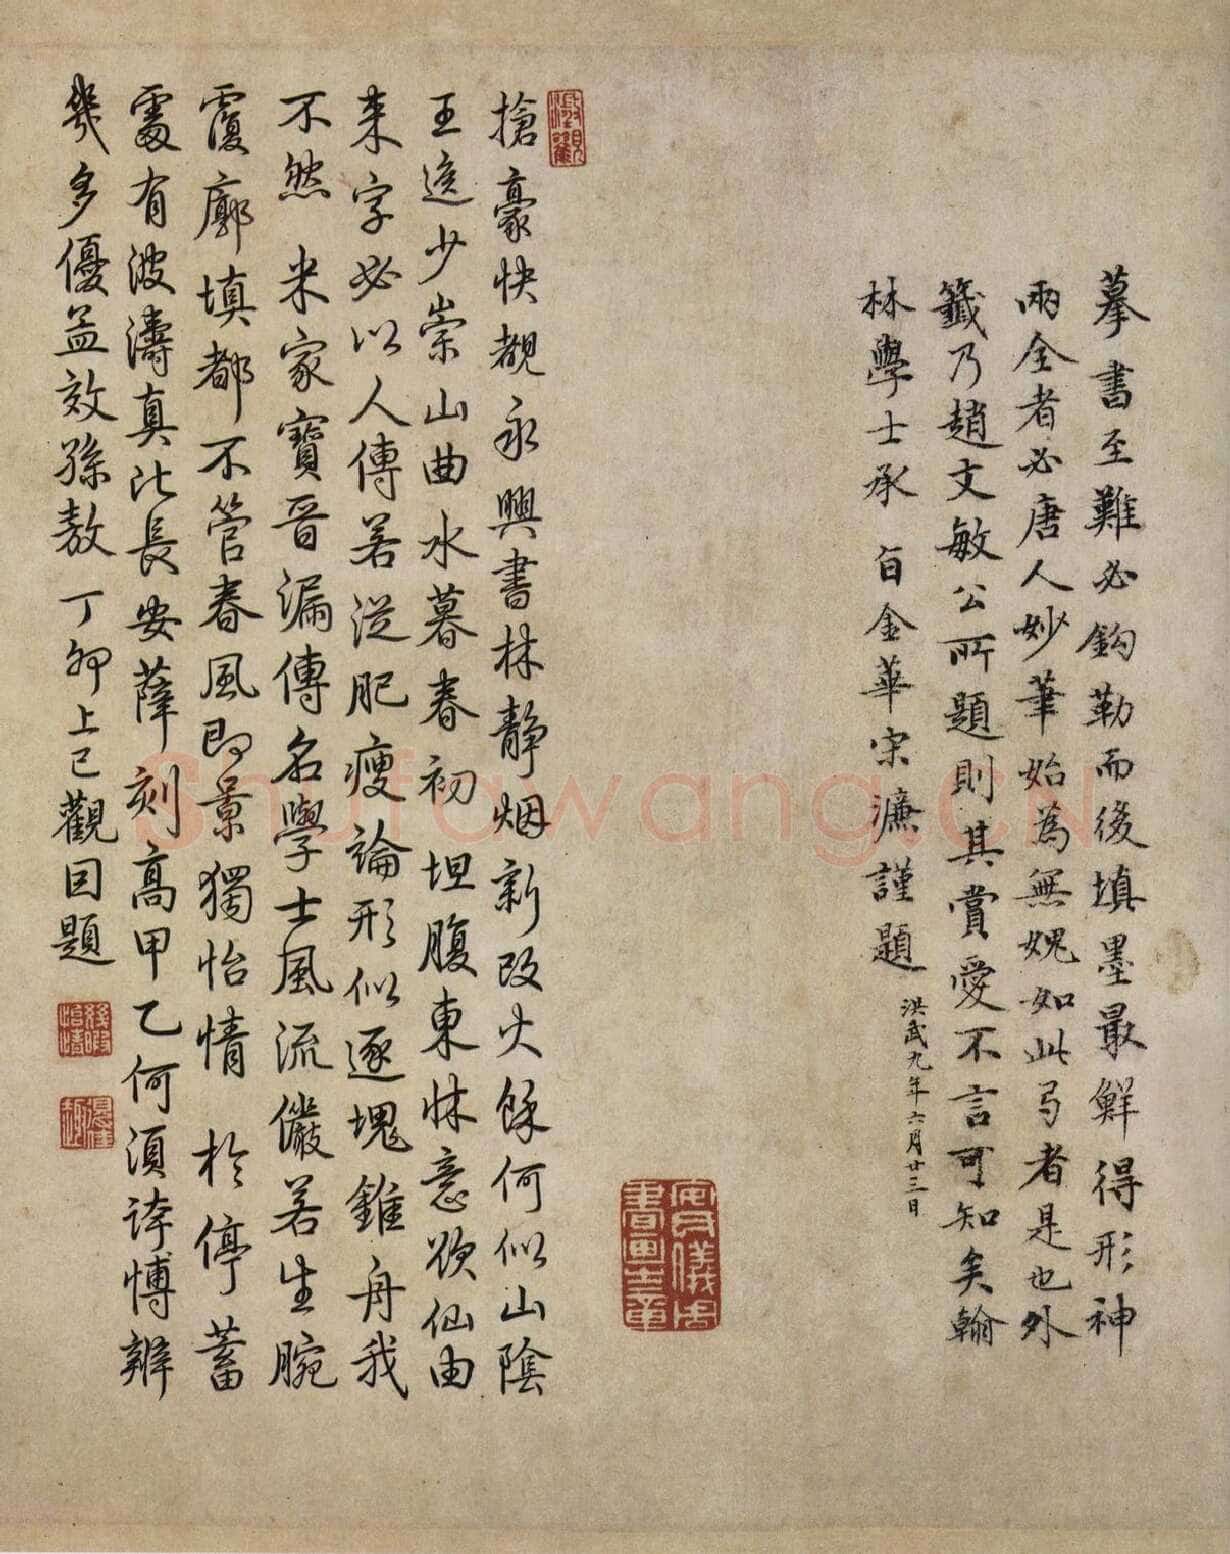 摹書至難必鈎勒而後填墨最鮮得形神
兩全者必唐人妙筆始為無媿如此弓者是也外
籤乃趙文敏公所題則其賞愛不言可知矣翰
林學士承 旨金華宋濂謹題
洪武九年六月廿三日
搶豪快覩永興書林靜烟新改火餘何似山陰
王逸少崇山曲水暮春初 坦腹東牀意欲仙由
来字必以人傳若從肥瘦論形似逐塊錐舟我
不然 米家寶晉漏傳名學士風流儼若生腕
覆廓填都不管春風即景獨怡情 松停蓄
處有波濤真比長安薛刻高甲乙何須誇博辨
幾多優孟效孫敖 丁卯上巳觀因題
安儀周
書畫之章
Shufawang.CN